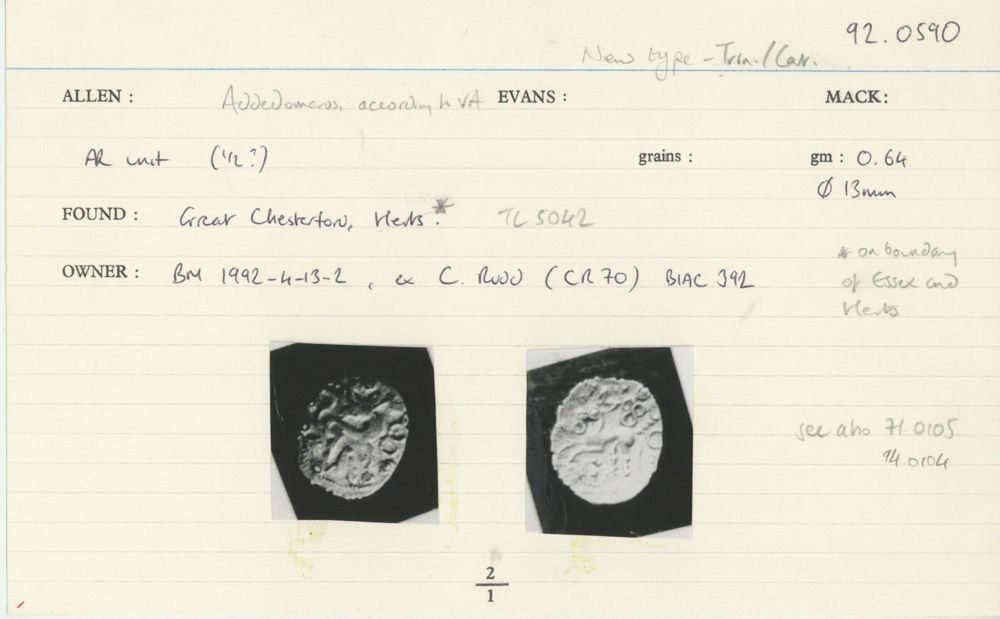 92.0590
New type - Trin./Cat.
ALLEN : Addedomaros, according to VA EVANS : MACK:
AR unit (1/2?) grains : gm : 0.64
Ø 13mm
FOUND : Great Chesterford, Herts.* TL 5042
* on boundary
of Essex and
Herts.
OWNER : BM 1992-4-13-2, ex C. Rudd (CR 70) BIAC 392
see also 71.0105
94.0104
2
1